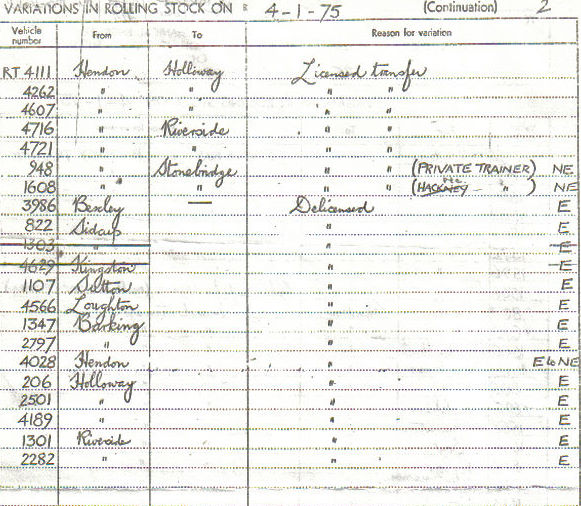 VARIATIONS IN ROLLING STOCK ON 4-1-75 (Continuation) 2
Vehicle number From To Reason for variation
RT 4111 Hendon Holloway Licensed transfer
4262 " " " "
4607 " " " "
4716 " Riverside " "
4721 " " " "
948 " Stonebridge " " (PRIVATE TRAINER) NE
1608 " " " " (HACKNEY Pte " ) NE
3986 Bexley — Delicensed E
822 Sidcup " E
1303 " " E
4629 Kingston " E
1107 Sutton " E
4566 Loughton " E
1347 Barking " E
2797 " " E
4028 Hendon " E to NE
206 Holloway " E
2501 " " E
4189 " " E
1301 Riverside " E
2282 " " E